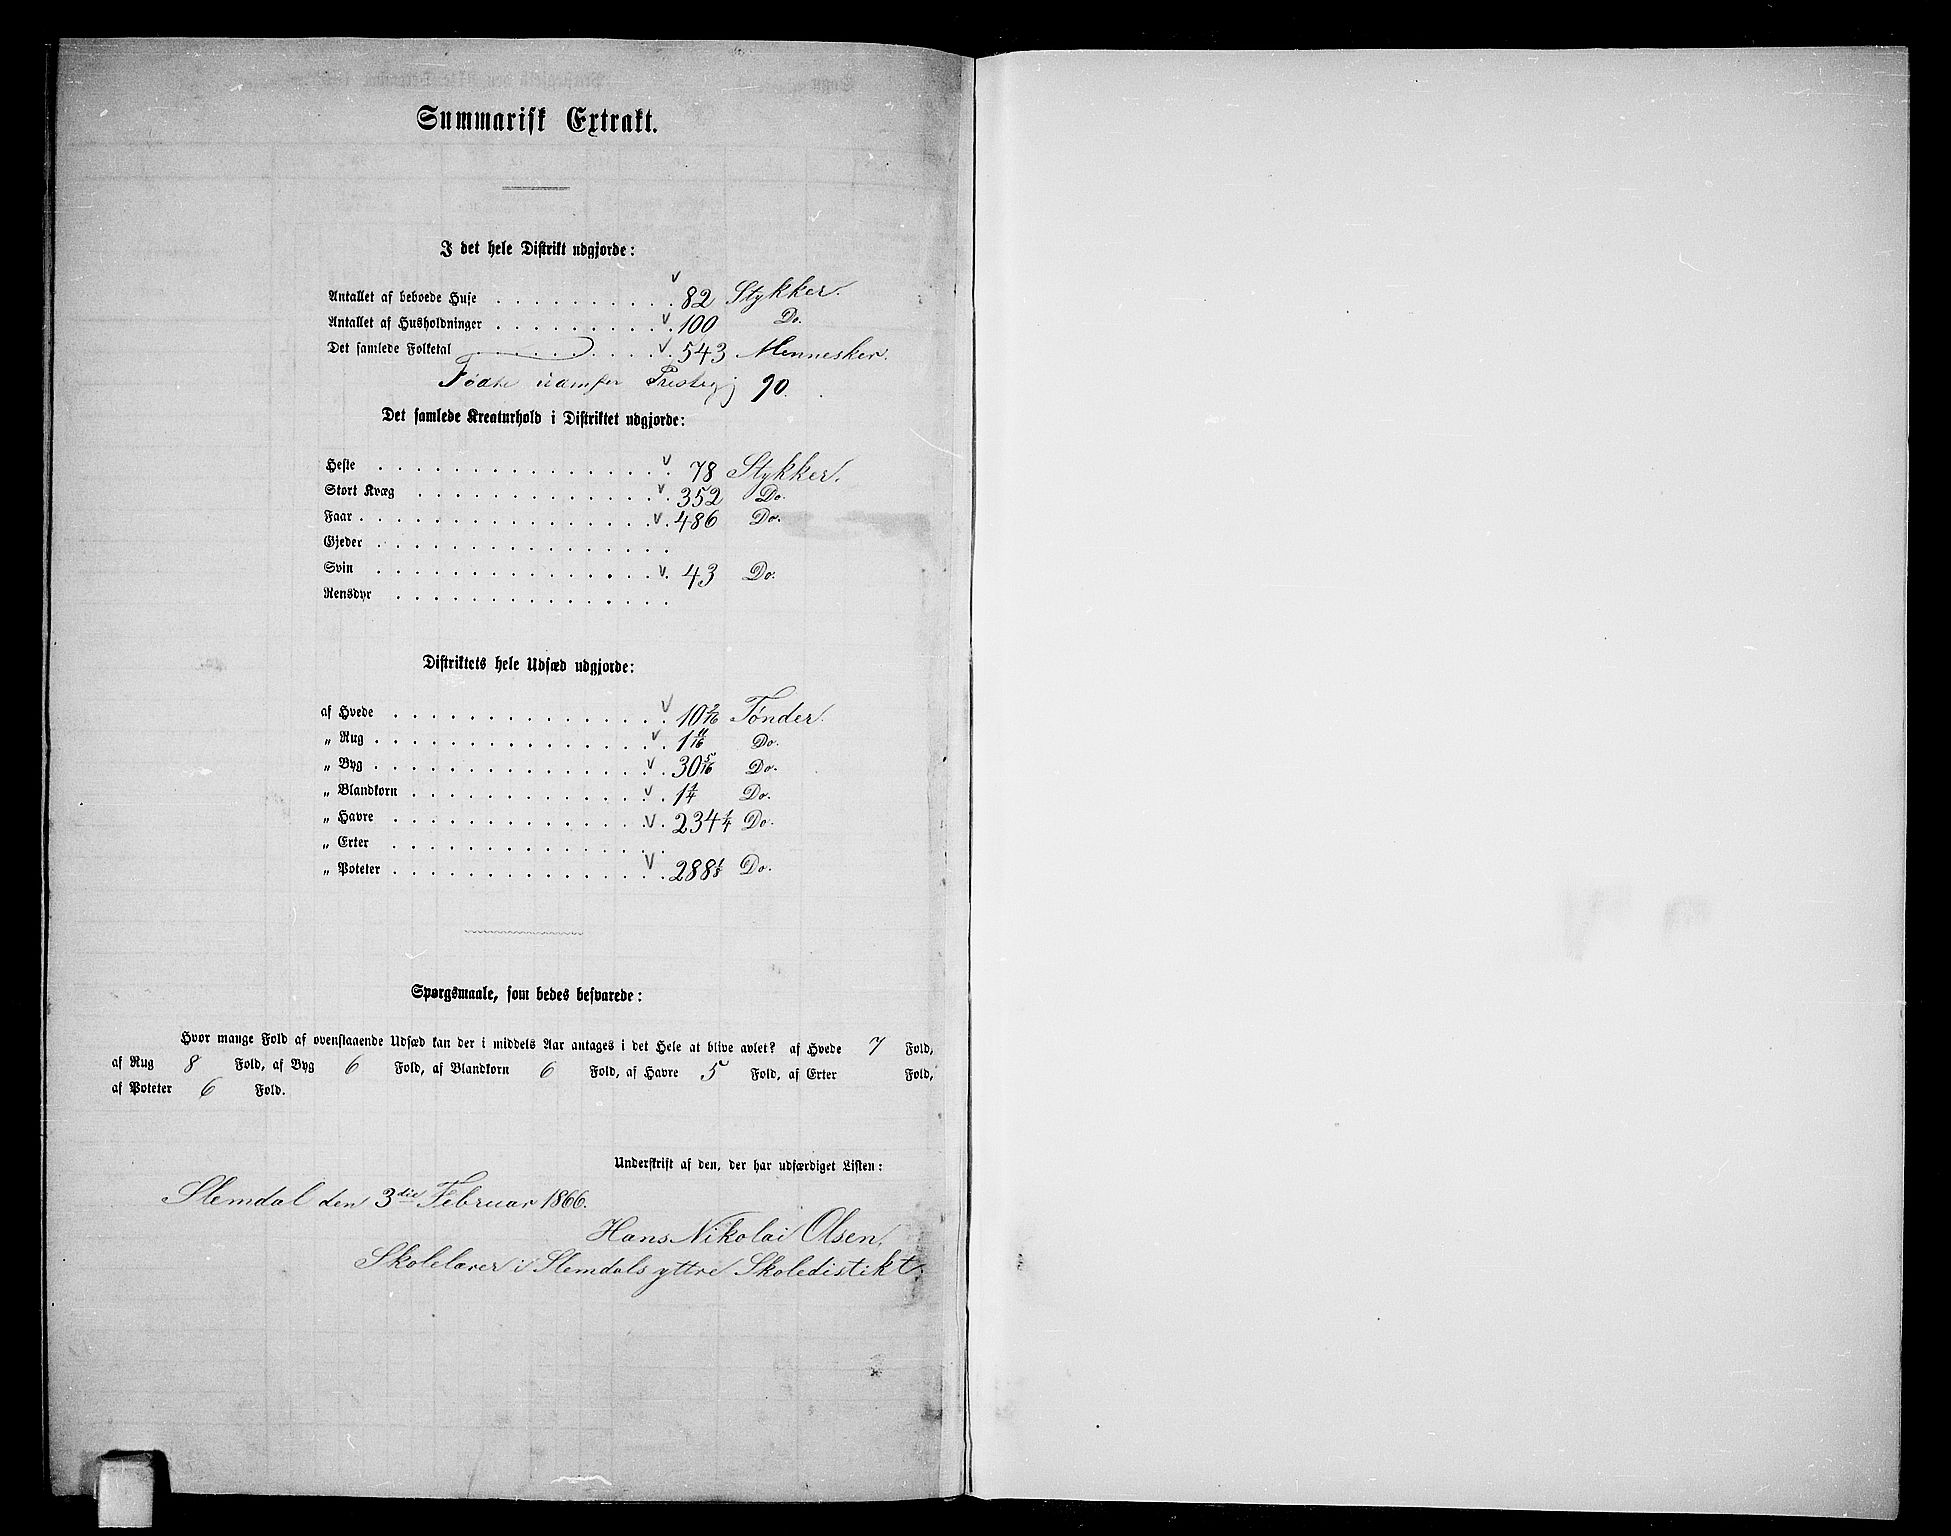 Summarisk Extrakt.
I det hele Distrikt udgjorde:
Antallet af beboede Huse . . . . . . . . . . v 82 Stykker.
Antallet af Husholdninger . . . . . . . . . v 100 Do.
Det samlede Folketal . . . . . . . . . . v 543 Mennesker.
Fødte udenfor Prestegj 90.
Det samlede Kreaturhold i Distriktet udgjorde:
Heste . . . . . . . . . . . . . . . . v 78 Stykker.
Stort Kvæg . . . . . . . . . . . . . . v 352 Do.
Faar . . . . . . . . . . . . . . . . v 486 Do.
Gjeder . . . . . . . . . . . . . . . .
Svin . . . . . . . . . . . . . . . . v 43 Do.
Rensdyr . . . . . . . . . . . . . . .
Distriktets hele Udsæd udgjorde:
af Hvede . . . . . . . . . . . . . . . v 10 Tønder.
„ Rug . . . . . . . . . . . . . . . . v 1 11/16 Do.
„ Byg . . . . . . . . . . . . . . . . v 30 5/16 Do.
„ Blandkorn . . . . . . . . . . . . . . v 1 1/4 Do.
„ Havre . . . . . . . . . . . . . . . v 234 1/4 Do.
„ Erter . . . . . . . . . . . . . . .
„ Poteter . . . . . . . . . . . . . . . v 288 1/8 Do.
Spørgsmaale, som bedes besvarede:
Hvor mange Fold af ovenstaaende Udsæd kan der i middels Aar antages i det Hele at blive avlet? af Hvede 7 Fold,
af Rug 8 Fold, af Byg 6 Fold, af Blandkorn 6 Fold, af Havre 5 Fold, af Erter Fold,
af Poteter 6 Fold.
Underskrift af den, der har udfærdiget Listen:
Slemdal den 3die Februar 1866.
Hans Nikolai Olsen,
Skolelærer i Slemdals yttre Skoledistikt.